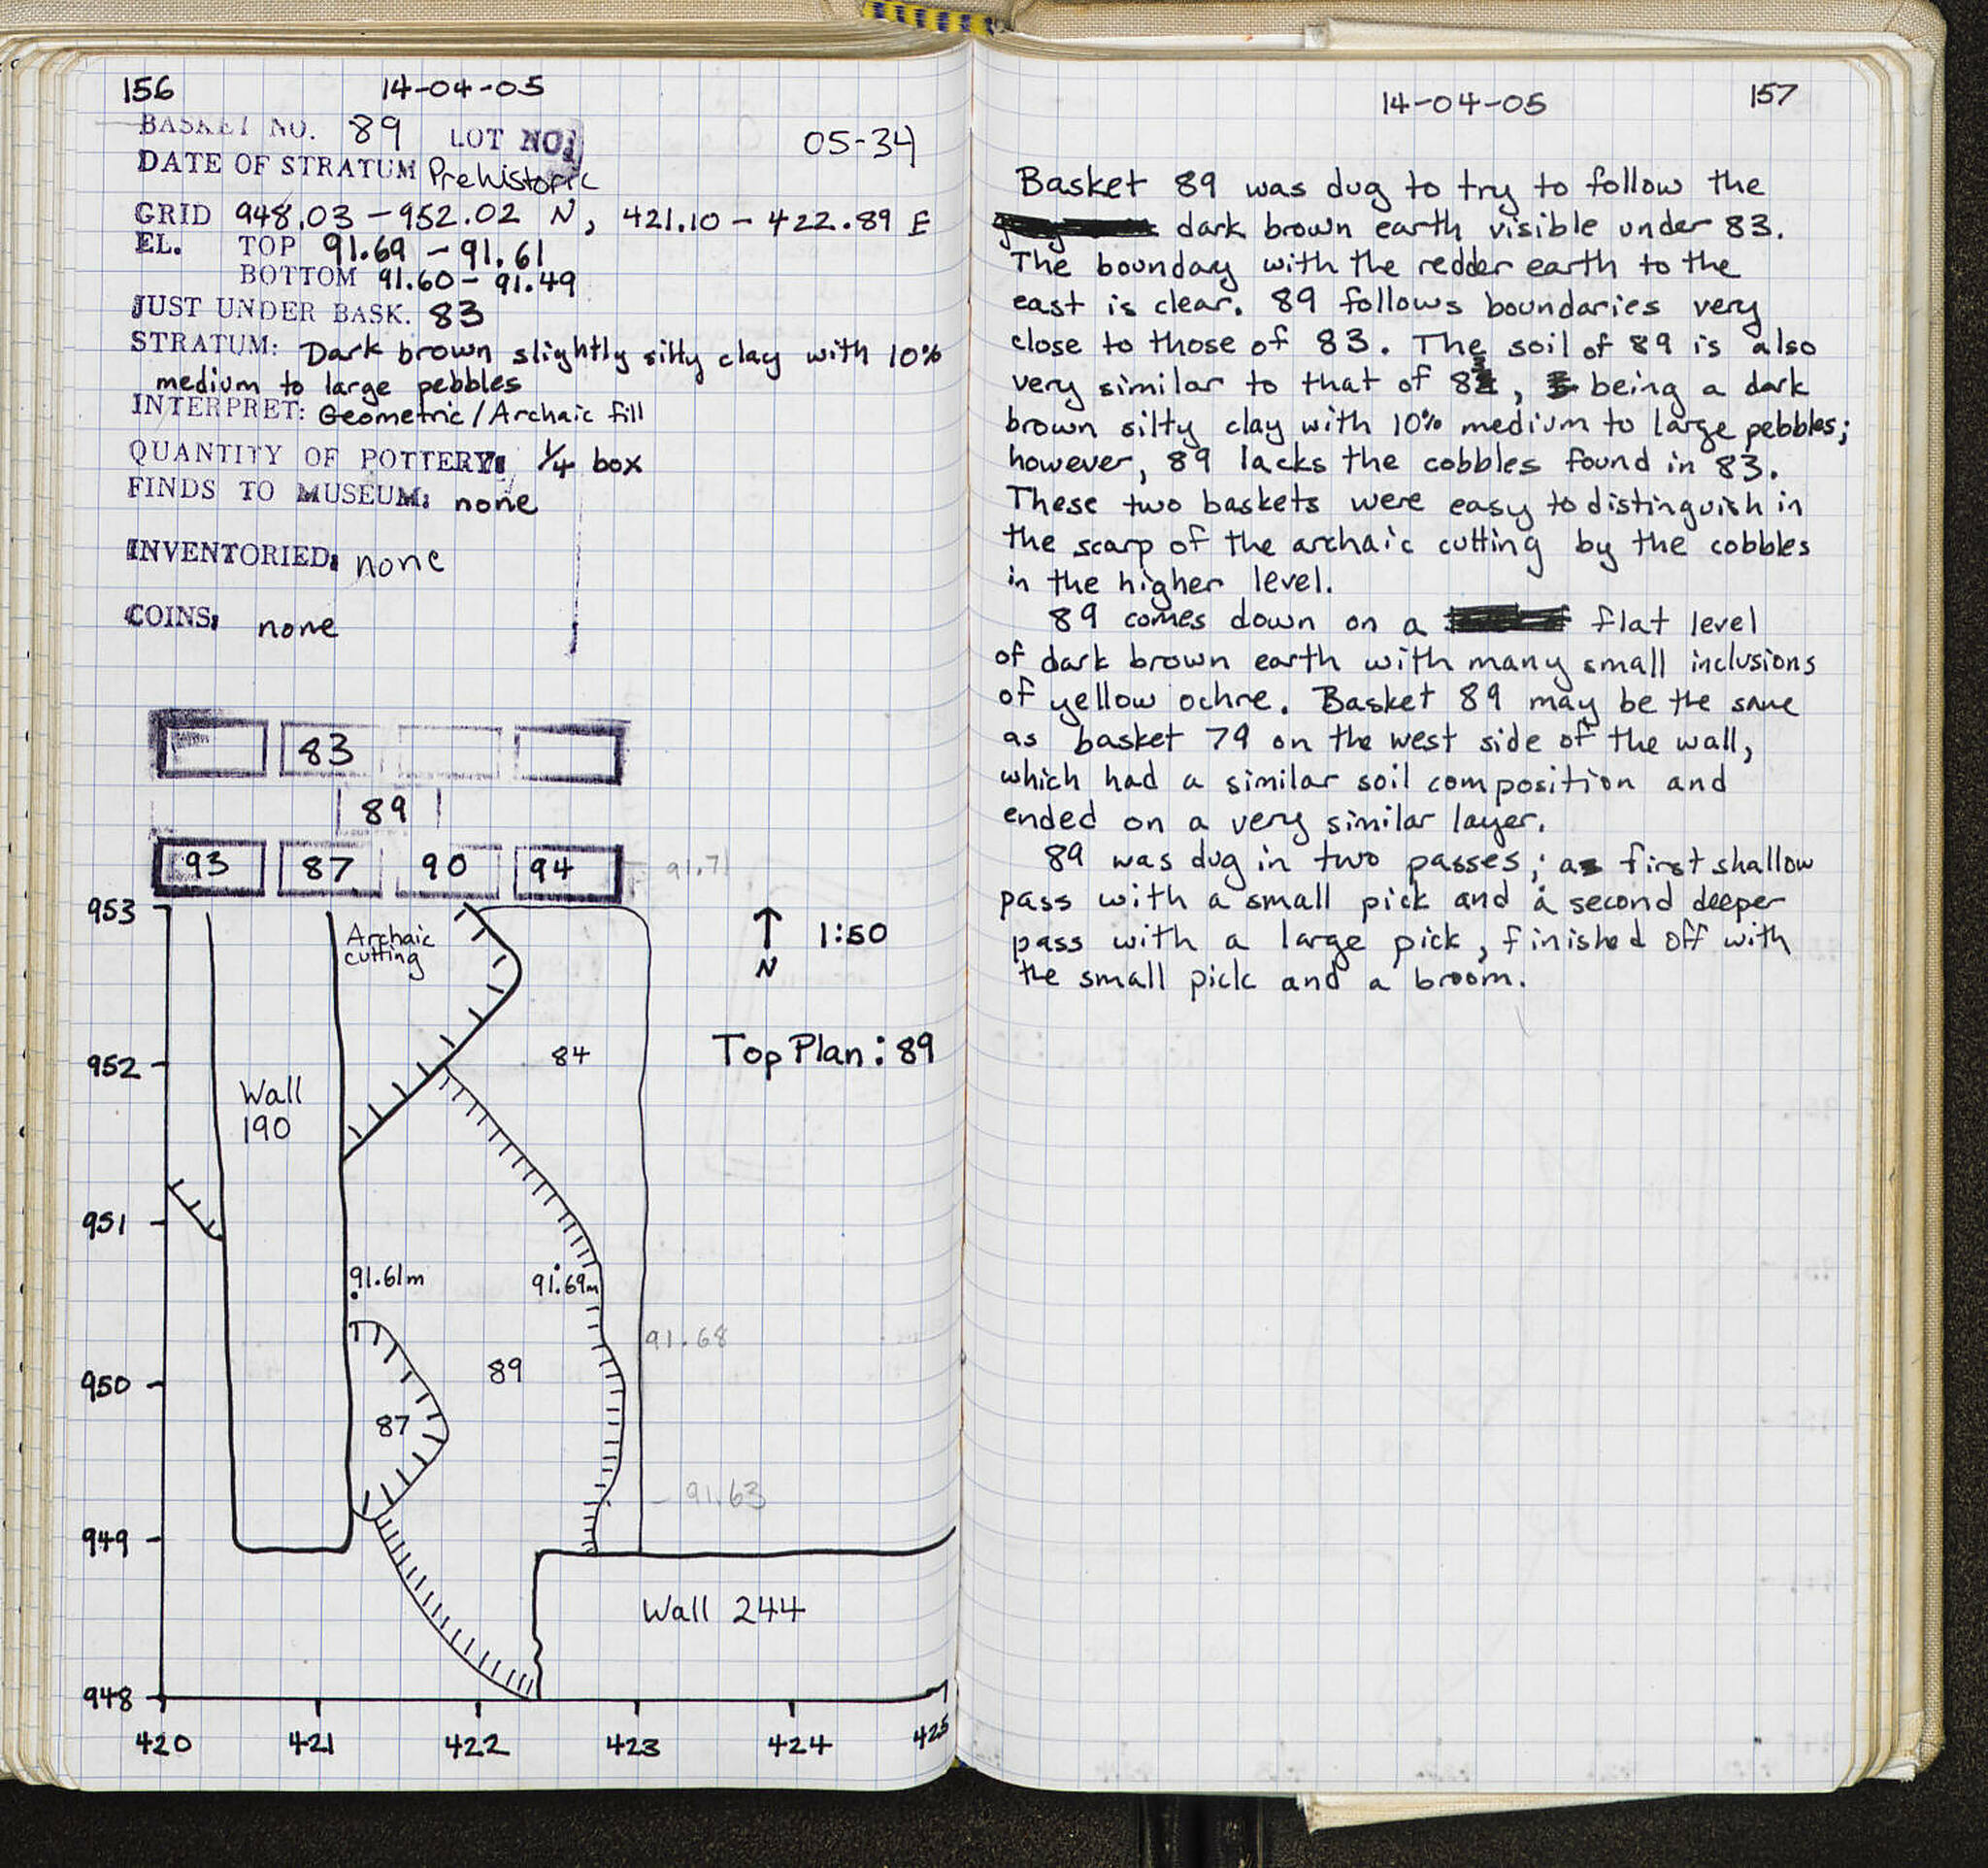 156 14-04-05
BASKET NO. 89 LOT NO: 05-34
DATE OF STRATUM Prehistoric
GRID 948.03-952.02 N, 421.10-422.89 E
EL. TOP 91.69-91.61
BOTTOM 91.60-91.49
JUST UNDER BASK. 83
STRATUM: Dark brown slightly silty clay with 10%
medium to large pebbles
INTERPRET: Geometric/Archaic fill
QUANTITY OF POTTERY: 1/4 box
FINDS TO MUSEUM: none
INVENTORIED: none
COINS: none
83
89
93 87 90 94
91.71
953
Archaic
cutting
N
1:50
Top Plan: 89
952
84
Wall
190
951
91.61m
91.69m
91.68
950
89
87
91.63
949
Wall 244
948
420 421 422 423 424 425
14-04-05 157
Basket 89 was dug to try to follow the
dark brown earth visible under 83.
The bounday with the redder earth to the
east is clear. 89 follows boundaries very
close to those of 83. The soil of 89 is also
very similar to that of 83, being a dark
brown silty clay with 10% medium to large pebbles;
however, 89 lacks the cobbles found in 83.
These two baskets were easy to distinguish in
the scarp of the archaic cutting by the cobbles
in the higher level.
89 comes down on a flat level
of dark brown earth with many small inclusions
of yellow ochre. Basket 89 may be the same
as basket 79 on the west side of the wall,
which had a similar soil composition and
ended on a very similar layer.
89 was dug in two passes; a first shallow
pass with a small pick and a second deeper
pass with a large pick, finished off with
the small pick and a broom.